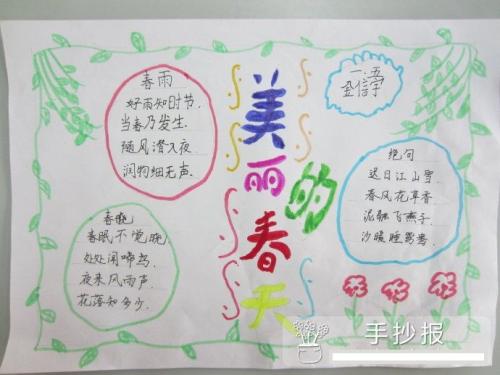 春雨
好雨知时节.
当春乃发生.
随风潜入夜
润物细无声.
美丽的春天
一·五
金信宇
绝句
迟日江山雪.
春风花草香.
泥融飞燕子.
沙暖睡鸳鸯.
春晓
春眠不觉晓.
处处闻啼鸟.
夜来风雨声.
花落知多少.
手抄报